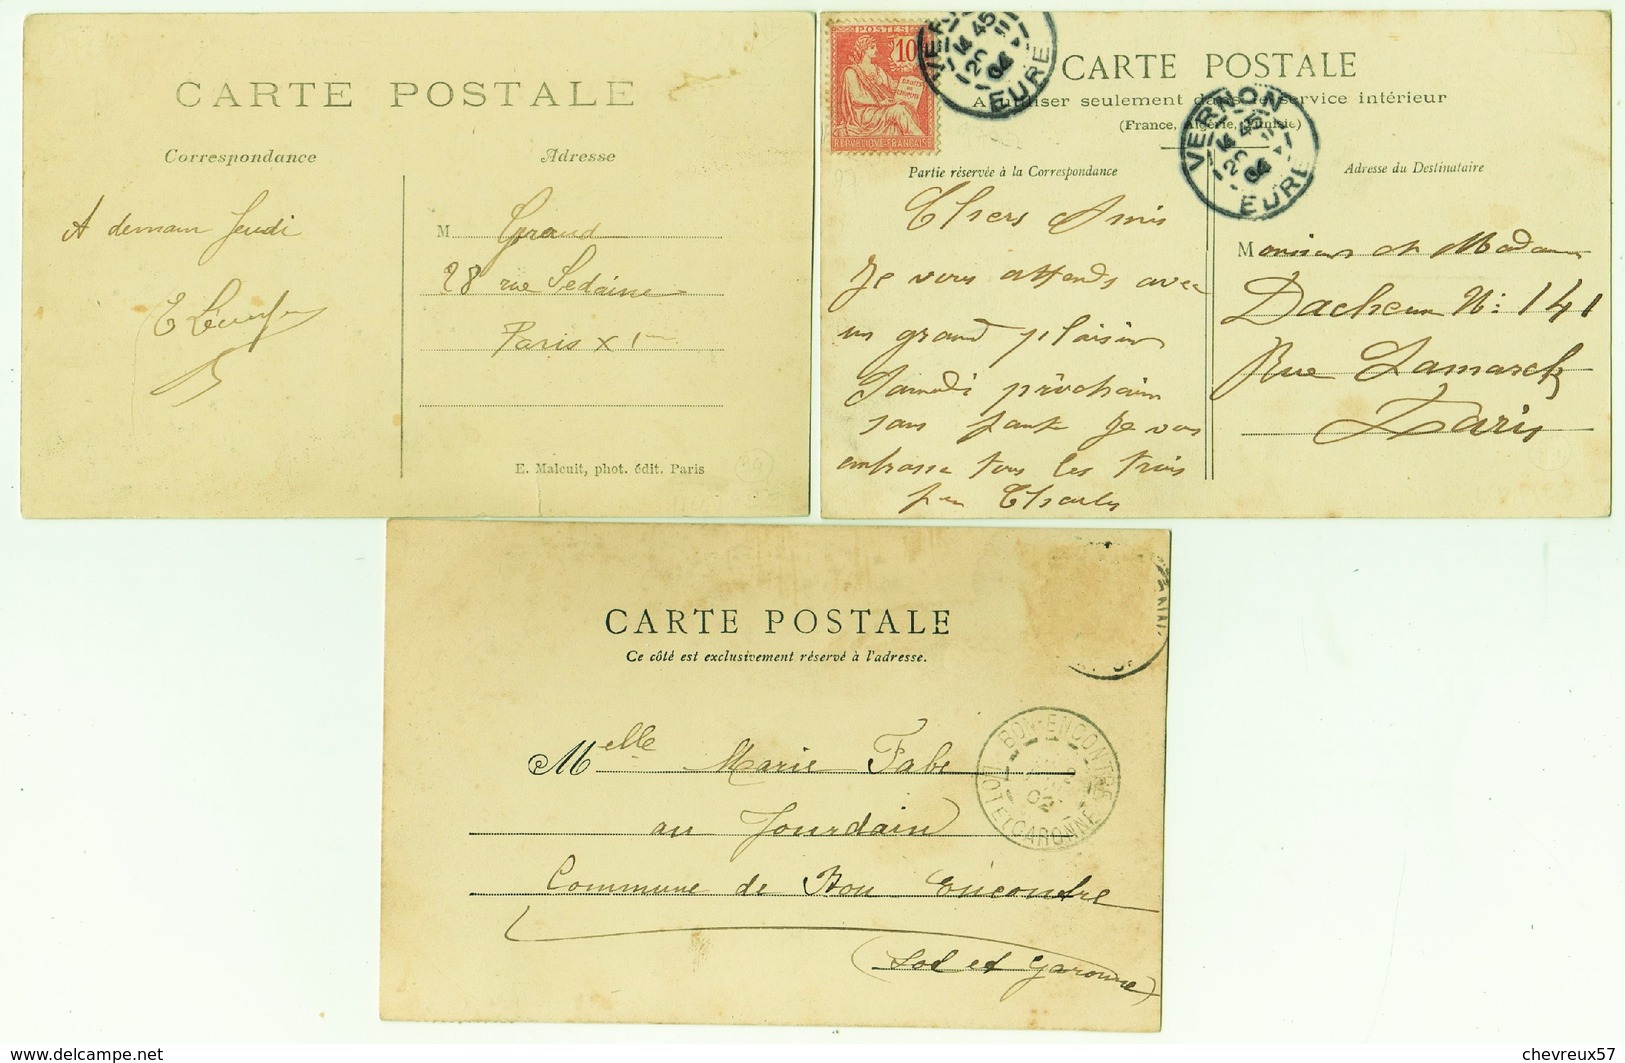 CARTE POSTALE
Correspondance
Adresse
A demain Jeudi
M Giraud
28 rue Sedaine
Paris X1
E. Malcuit, phot. édit. Paris
POSTES
10
DROITS DE L'HOMME
REPUBLIQUE FRANÇAISE
VERNON
EURE
CARTE POSTALE
A utiliser seulement dans le service intérieur
(France, Algérie, Tunisie)
VERNON
20
04
EURE
Partie réservée à la Correspondance
Adresse du Destinataire
Chers Amis
Je vous attends avec
un grand plaisir
Samedi prochain
sans faute Je vous
embrasse tous les trois
Charles
Monsieur et Madame
Dacheux N: 141
Rue Lamarck
Paris
CARTE POSTALE
Ce côté est exclusivement réservé à l'adresse.
BON-ENCONTRE
02
LOT ET GARONNE
Melle Marie Fabe
au Jourdain
Commune de Bon Encontre
(Lot et Garonne)
www.delcampe.net
chevreux57